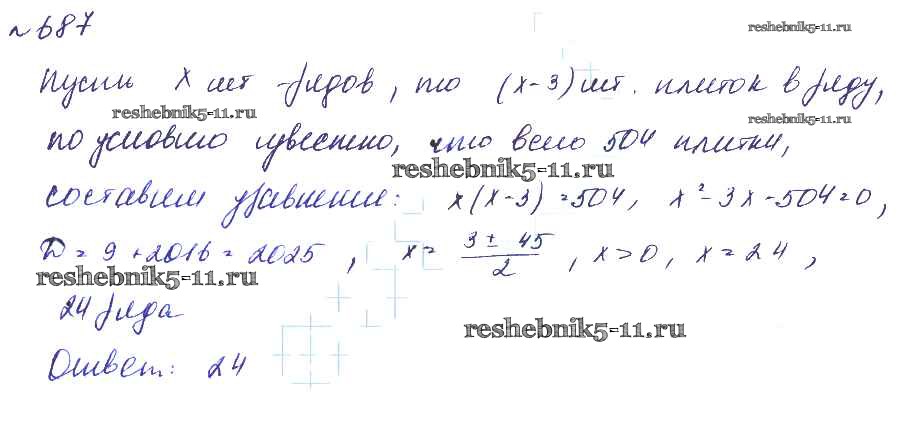 № 687
reshebnik5-11.ru
Пусть x шт - рядов, то (x-3) шт. плиток в ряду,
reshebnik5-11.ru
reshebnik5-11.ru
по условию известно, что всего 504 плитки,
reshebnik5-11.ru
составим уравнение: x(x-3)=504, x²-3x-504=0,
D=9+2016=2025, x=(3±45)/2, x>0, x=24,
reshebnik5-11.ru
24 ряда
reshebnik5-11.ru
Ответ: 24